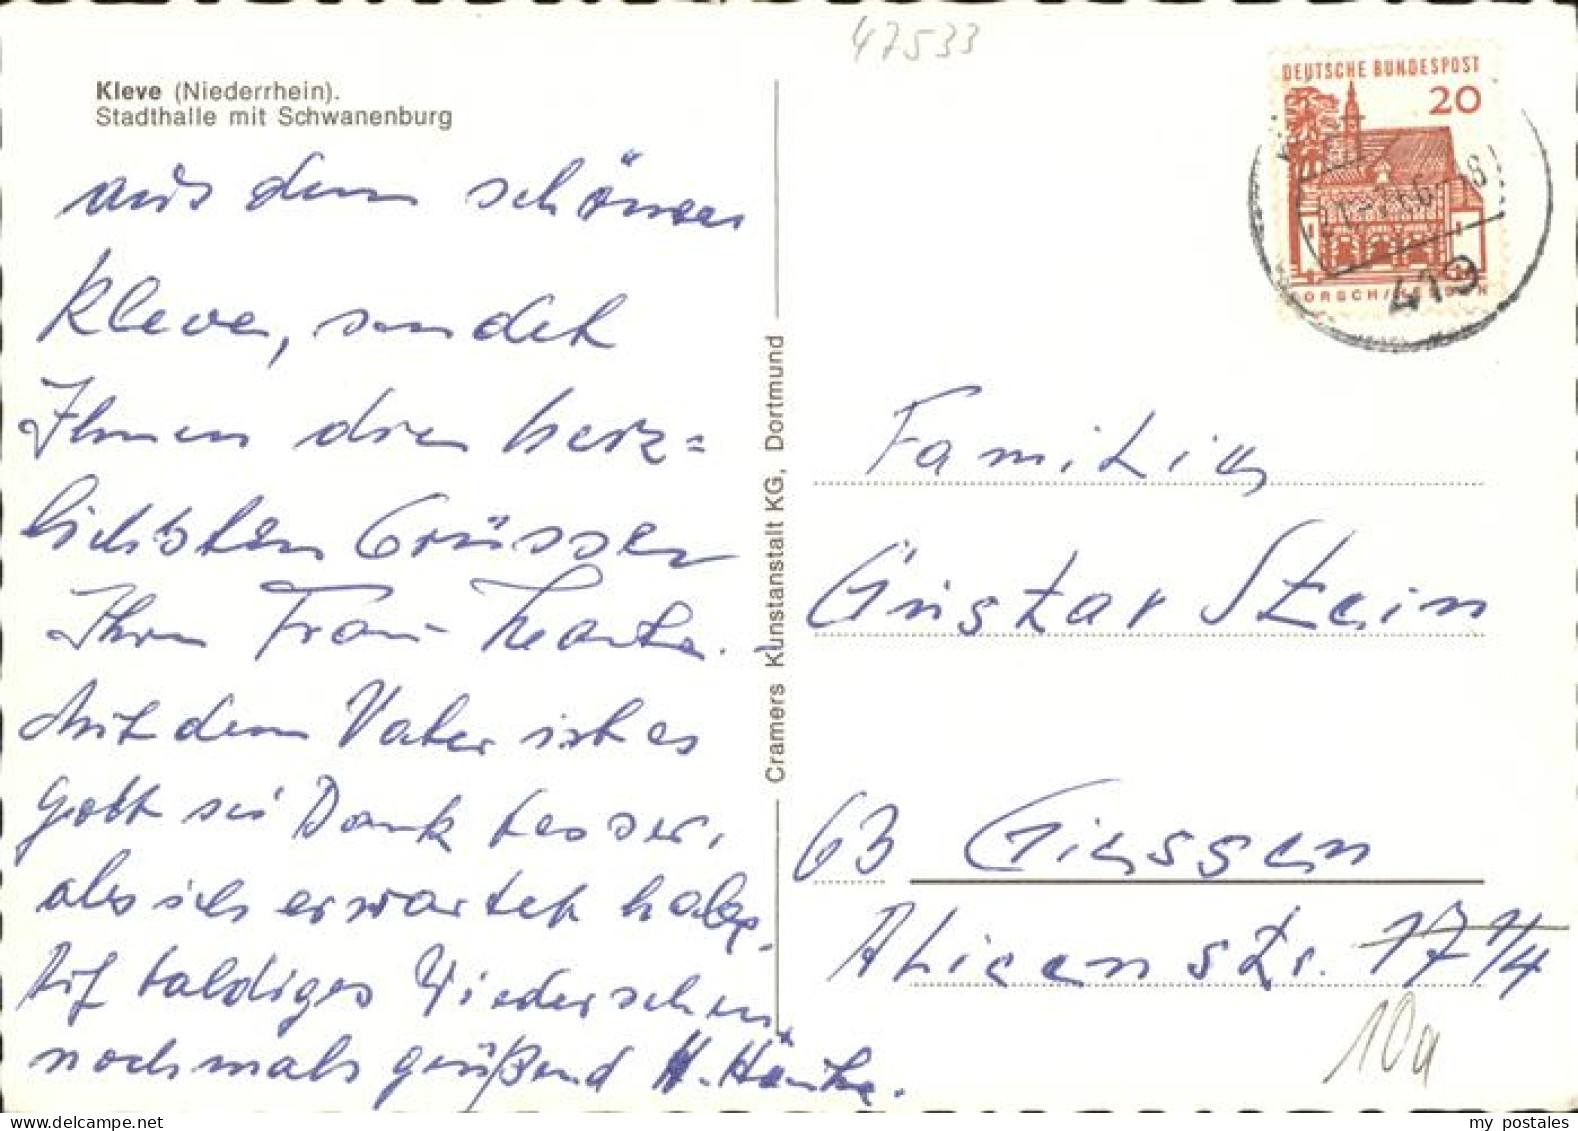 47533
Kleve (Niederrhein).
Stadthalle mit Schwanenburg
aus dem schönen
Kleve, sendet
Ihnen die herz=
lichsten Grüssen
Ihre Frau
Mit dem Vater ist es
Gott sei Dank besser,
als ich erwartet habe.
Auf baldiges Wiedersehen
nochmals grüßend H.
Cramers Kunstanstalt KG, Dortmund
DEUTSCHE BUNDESPOST
20
LORSCH/HESSEN
419
Familie
Gustav Stein
63 Giessen
Alicenstr. 17 1/4
10a
my postales